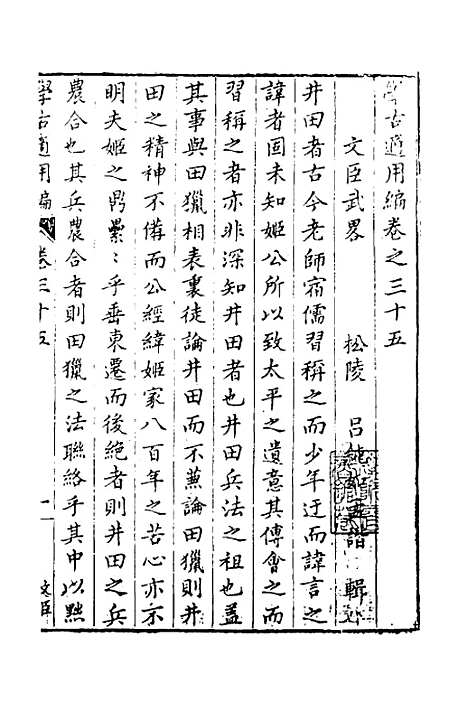 學古適用編卷之三十五
文臣武畧 松陵 呂純如 輯
井田者古今老師宿儒習稱之而少年迂而諱言之
諱者固未知姬公所以致太平之遺意其傅會之而
習稱之者亦非深知井田者也井田兵法之祖也蓋
其事與田獵相表裏徒論井田而不兼論田獵則井
田之精神不備而公經緯姬家八百年之苦心亦不
明夫姬之鼎纍纍乎垂東遷而後絶者則井田之兵
農合也其兵農合者則田獵之法聯絡乎其中以黙
學古適用編 卷三十五 一 文臣